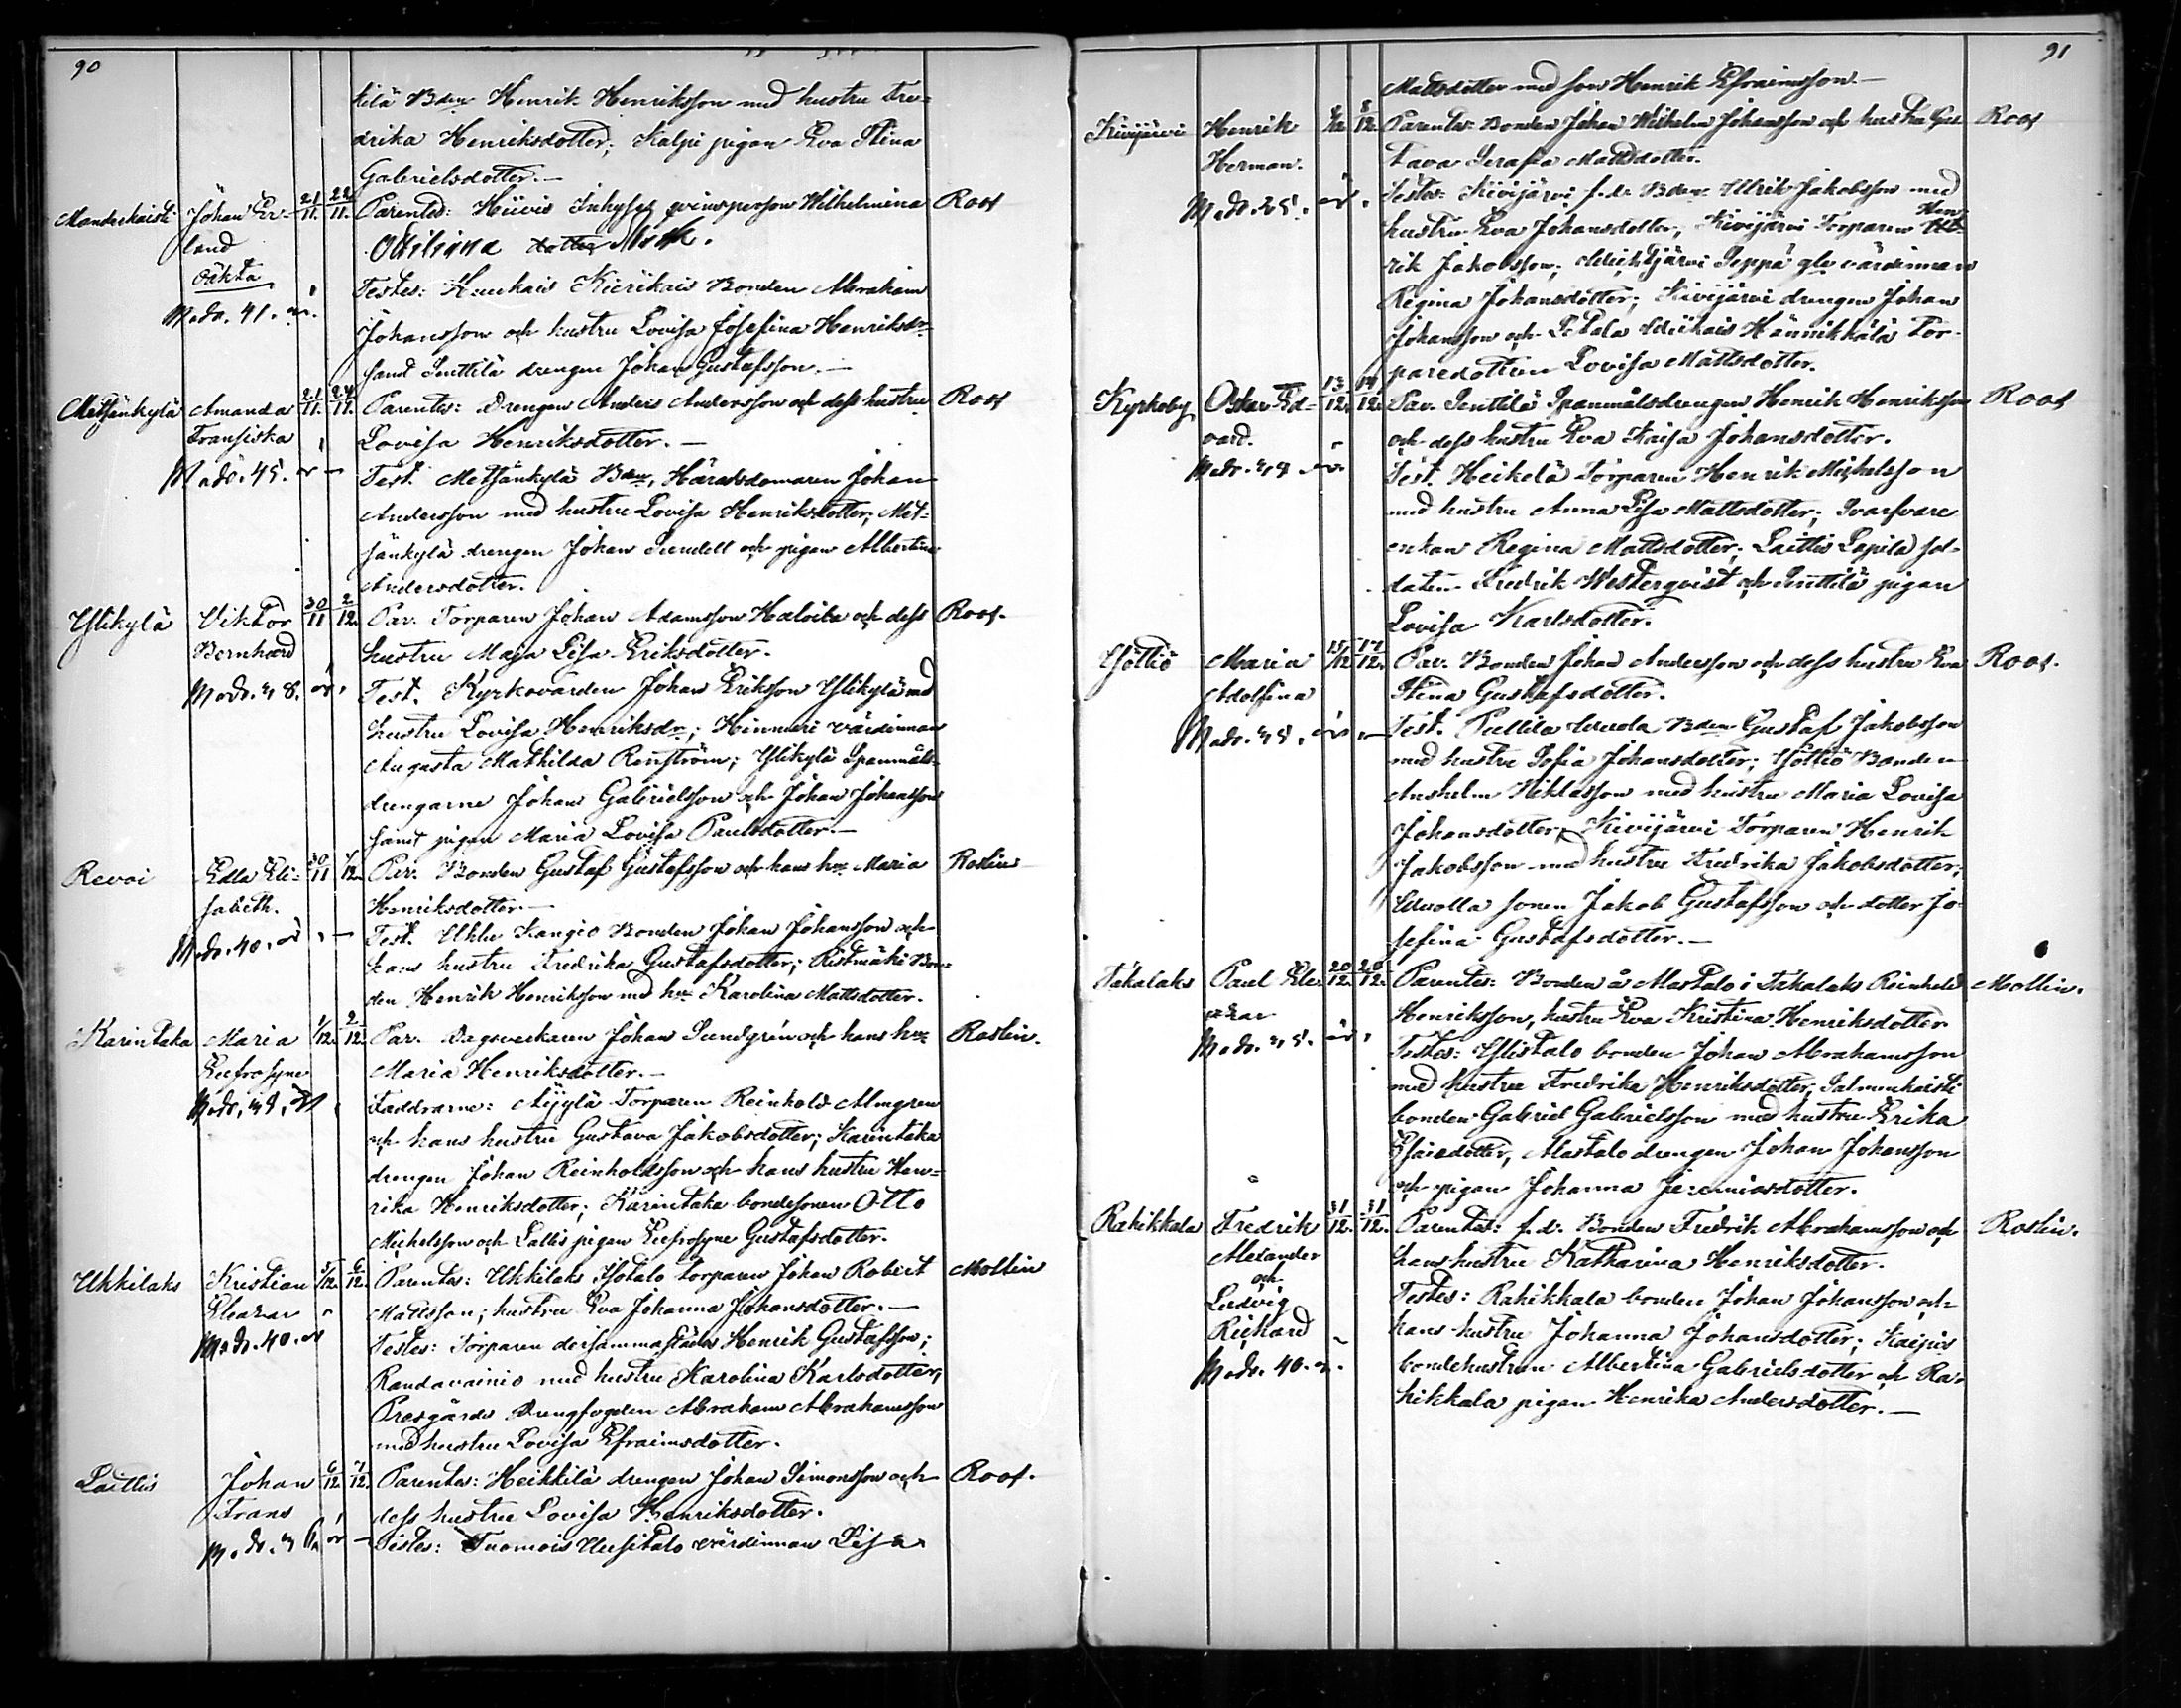 90
kilä Bden Henrik Henriksson med hustru Fre-
drika Henriksdotter; Kalpi pigan Eva Stina
Galrielsdotter.—
Manderkaisti Johan Er- 21/11. 22/11. Parentes: Hiivis Inhyses qvinsperson Wilhelmina Roos
land Otiliana
Oäkta Testes: Kierikais Bonden Abraham
Modr. 41. år. Johansson och hustru Lovisa Josefina Henriksdr
samt Penttilä drengen Johan Gustafsson.—
Metsänkylä Amanda 21/11. 24/11. Parentes: Drengen Anders Andersson och dess hustru Roos
Fransiska Lovisa Henriksdotter.—
Modr. 45. år — Test. Metsänkylä Bden, Häradsdomaren Johan
Andersson med hustru Lovisa Henriksdotter; Met-
sänkylä drengen Johan Sundell och pigan Albertina
Andersdotter.
Ylikylä Viktor 30/11 2/12. Par. Torparen Johan Adamsson Haloila och dess Roos.
Bernhard hustru Maja Lisa Eriksdotter.
Modr. 38. år. Test. Kyrkovärden Johan Eriksson Ylikylä med
hustru Lovisa Henriksdr; Hinmeri värdinnan
Augusta Mathilda Renström; Ylikylä Spanmåls-
drengarne Johan Gabrielsson och Johan Johansson
samt pigan Maria Lovisa Paulsdotter.—
Revoi Edla Eli- 30/11 1/12. Par. Bonden Gustaf Gustafsson och hans hu Maria Roslin
sabeth. Henriksdotter.—
Modr. 40. år. — Test. Uhlu Kangio Bonden Johan Johansson och
hans hustru Fredrika Gustafsdotter; Ristmäki Bon-
den Henrik Henriksson med hu Karolina Mattsdotter.
Karintaka Maria 1/12. 2/12. Par. Dagsverkaren Johan Sundgrén och hans hu Roslin.
Eufrosyne Maria Henriksdotter.—
Modr. Faddrarne: Äyylä Torparen Reinhold Almgren
och hans hustru Gustava Jakobsdotter; Karintaka
drengen Johan Reinholdsson och hans hustru Hen-
rika Henriksdotter; Karintaka bondesonen Otto
Michelsson och Lattis pigan Eufrosyne Gustafsdotter.
Uhkilaks Kristian 5/12. 6/12. Parentes: Uhkilaks Isotalo torparen Johan Robert Mollin
Eleazar Mattsson; hustru Eva Johanna Johansdotter.—
Modr. 40. år Testes: Torparen dersammastädes Henrik Gustafsson;
Randavainio med hustru Karolina Karlsdotter,
Prestgårds Drengfogden Abraham Abrahamsson
med hustru Lovisa Efraimsdotter.
Laittis Johan 6/12. 7/12. Parentes: Heikkilä drengen Johan Simonsson och Roos.
Frans dess hustru Lovisa Henriksdotter.
Modr. år — Testes: Tuomois Uusitalo värdinnan Lisa
91
Mattsdotter med son Henrik Efraimsson.—
Kivijärvi Henrik 8/12. Parentes: Bonden Johan Wilhelm Johansson och hustru Gus- Roos
Herman. tava Serafia Mattsdotter.
Modr. 25. år. Testes: Kivijärvi f.d. Bden Ulrik Jakobsson med
hustru Eva Johansdotter, Kivijärvi Torparen Hen-
rik Jakobsson; Seppä gla värdinnan
Regina Johansdotter; Kivijärvi drengen Johan
Johansson och Hännikkälä Tor-
paredottren Lovisa Mattsdotter.
Kyrkoby Oskar Ed- 13/12. 14/12. Par. Penttilä Spanmålsdrengen Henrik Henriksson Roos
vard. och dess hustru Eva Kaisa Johansdotter.
Modr. år. Test. Heikelä Torparen Henrik Michelsson
med hustru Anna Lisa Mattsdotter; Svarfvare
enkan Regina Mattsdotter; Laittis Lapila sol-
daten Fredrik Westerqvist och Penttilä pigan
Lovisa Karlsdotter.
Yöttiö Maria 15/12 17/12. Par. Bonden Johan Andersson och dess hustru Eva Roos.
Adolfina Stina Gustafsdotter.
Modr. 35. år. — Test. Pullila Uuola Bden Gustaf Jakobsson
med hustru Sofia Johansdotter; Yöttiö Bonden
Anshelm Niklasson med hustru Maria Lovisa
Johansdotter; Kivijärvi Torparen Henrik
Jakobsson med hustru Fredrika Jakobsdotter;
sonen Jakob Gustafsson och dotter Jo-
sefina Gustafsdotter.—
Täkalaks Paul Ele- 20/12. 20/12. Parentes: Bonden å Mastalo i Täkalaks Reinhold Mollin.
azar Henriksson, hustru Eva Kristina Henriksdotter
Modr. 35. år. Testes: Ylistalo bonden Johan Abrahamsson
med hustru Fredrika Henriksdotter, Salmenhaisti
bonden Gabriel Gabrielsson med hustru Erika
Esaiedotter, Mastalo drengen Johan Johansson
och pigan Johanna Jeremiasdotter.
Rahikkala Fredrik 31/12. 31/12. Parentes: f.d. Bonden Fredrik Abrahamsson och Roslin.
Alexander hans hustru Katharina Henriksdotter.
och
Ludvig Testes: Rahikkala bonden Johan Johansson och
Richard hans hustru Johanna Johansdotter; Kaipis
Modr. 40. år. bondehustrun Albertina Gabrielsdotter och Ra-
hikkala pigan Henrika Andersdotter.—